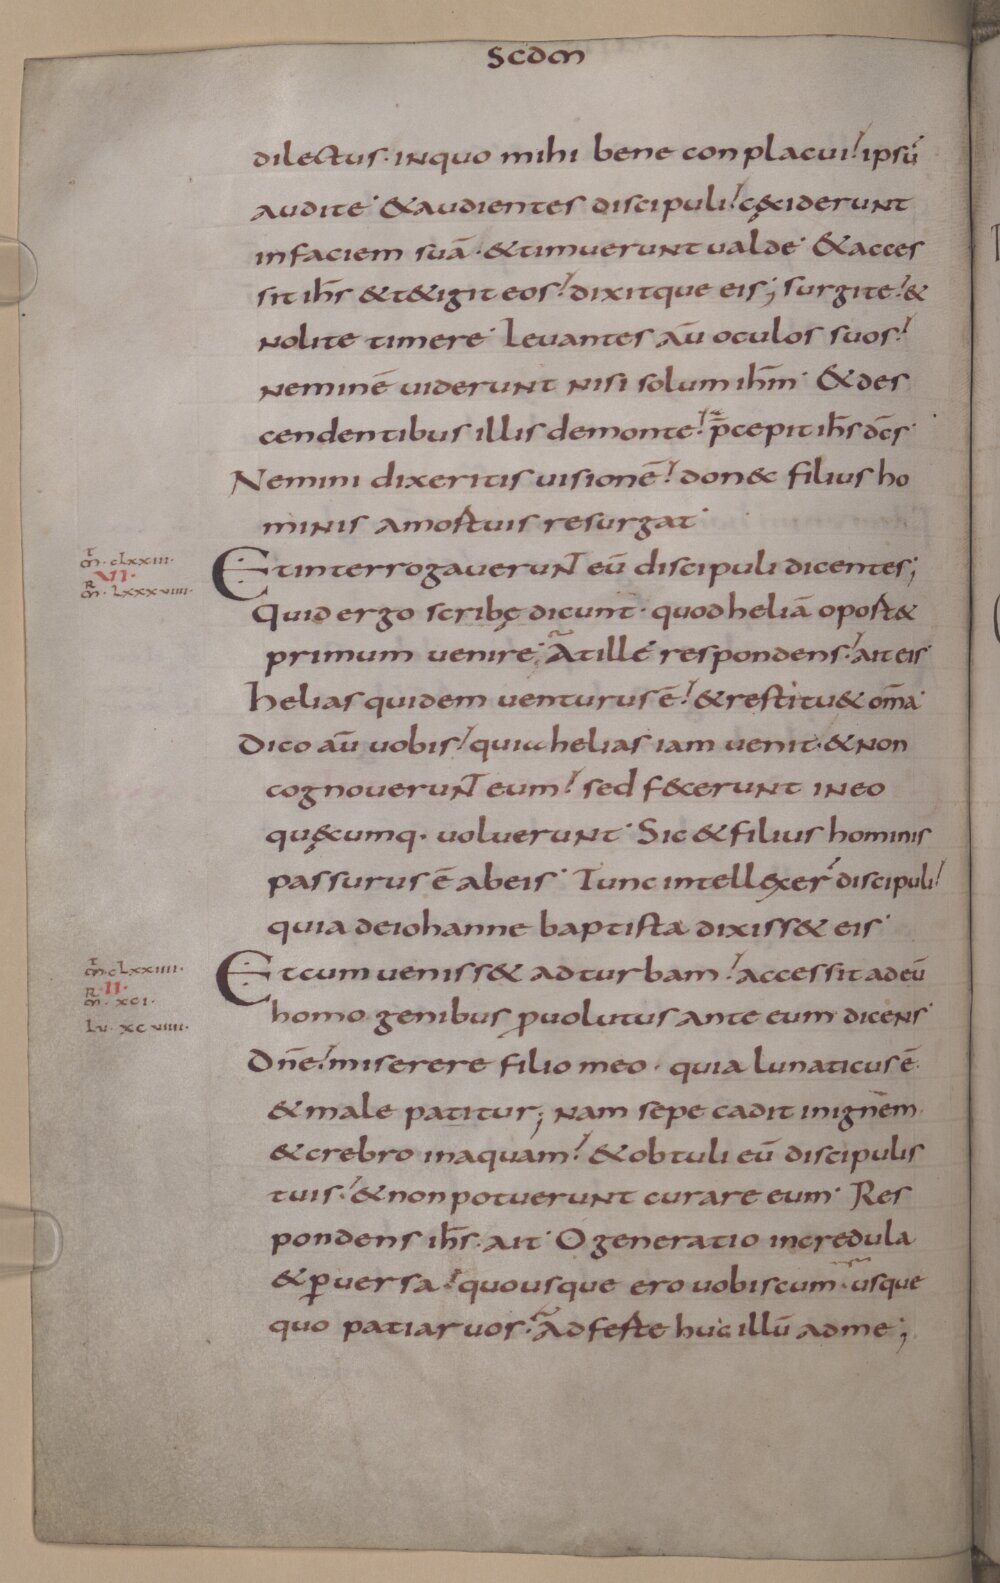 Scdm
dilectus· inquo mihi bene conplacui! ipsū
audite· &audientes discipuli! cęciderunt
infaciem suā·&timuerunt ualde· &acces
sit ih̄s &t&igit eos! dixitque eis; surgite! &
nolite timere· Leuantes aū oculos suos!
neminē uiderunt nisi solum ih̄m· &des
cendentibus illis demonte! p̄cepit ih̄s dc̄s·
Nemini dixeritis uisionē! don&c filius ho
minis amortuis resurgat·
Etinterrogauerunt eū discipuli dicentes;
Quid ergo scribę dicunt· quodheliā oport&
primum uenire; Atille respondens! ait eis·
helias quidem uenturus ē! &restitu& om̄a·
Dico aū uobis! quia helias iam uenit·&non
cognouerunt eum! sed f&cerunt ineo
quęcumq· uoluerunt· Sic &filius hominis
passurus ē abeis· Tunc intellexer̄ discipuli!
quia deiohanne baptista dixiss& eis·
Etcum ueniss& adturbam! accessit adeū
homo genibus ꝓuolutus ante eum dicens·
Dn̄e! miserere filio meo· quia lunaticus ē·
&male patitur; nam sepe cadit inignem·
&crebro inaquam! &obtuli eū discipulis
tuis! &nonpotuerunt curare eum· Res
pondens ih̄s· ait· O generatio incredula
&ꝑuersa! quousque ero uobiscum· usque
quo patiar uos· Adferte huc illū adme;
T
m· cLxxiii·
VII·
R
m· Lxxxviiii·
T
m cLxxiiii·
II·
R
m· xci·
Lu· xcviiii·